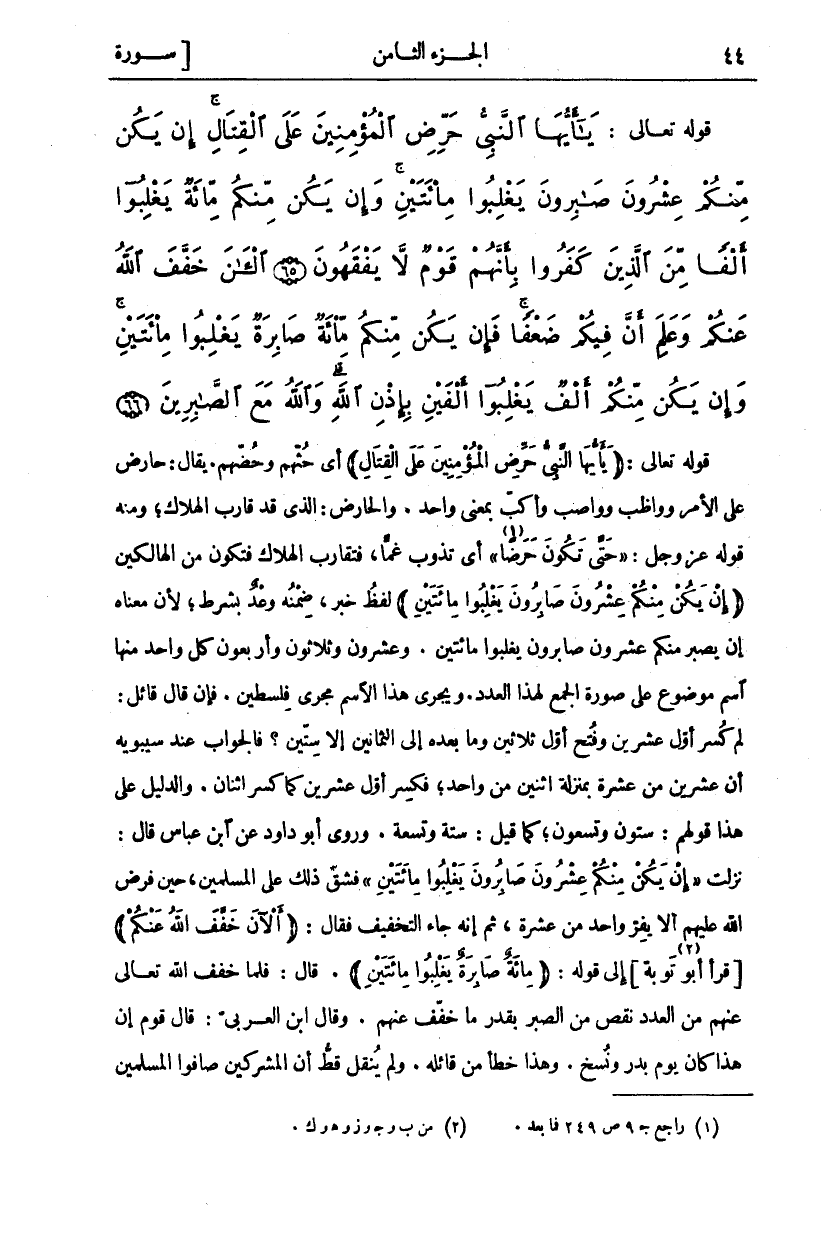 ٤٤ الجزء الثامن [ سورة
قوله تعالى : يَـٰٓأَيُّهَا ٱلنَّبِىُّ حَرِّضِ ٱلْمُؤْمِنِينَ عَلَى ٱلْقِتَالِۚ إِن يَكُن
مِّنكُمْ عِشْرُونَ صَـٰبِرُونَ يَغْلِبُوا مِا۟ئَتَيْنِۚ وَإِن يَكُن مِّنكُم مِّا۟ئَةٌ يَغْلِبُوٓا
أَلْفًا مِّنَ ٱلَّذِينَ كَفَرُوا بِأَنَّهُمْ قَوْمٌ لَّا يَفْقَهُونَ ٦٥ ٱلْـَٔـٰنَ خَفَّفَ ٱللَّهُ
عَنكُمْ وَعَلِمَ أَنَّ فِيكُمْ ضَعْفًاۚ فَإِن يَكُن مِّنكُم مِّا۟ئَةٌ صَابِرَةٌ يَغْلِبُوا مِا۟ئَتَيْنِۚ
وَإِن يَكُن مِّنكُمْ أَلْفٌ يَغْلِبُوٓا أَلْفَيْنِ بِإِذْنِ ٱللَّهِۗ وَٱللَّهُ مَعَ ٱلصَّـٰبِرِينَ ٦٦
قوله تعالى : ﴿يَأَيُّهَا النَّبِىُّ حَرِّضِ الْمُؤْمِنِينَ عَلَى الْقِتَالِ﴾ أى حُثّهم وحُضّهم. يقال: حارض
على الأمر وواظب وواصب وأكبّ بمعنى واحد . والحارض: الذى قد قارب الهلاك؛ ومنه
قوله عز وجل : «حَتَّى تَكُونَ حَرَضًا» (١) أى تذوب غمًّا، فتقارب الهلاك فتكون من الهالكين
﴿إِنْ يَكُنْ مِنْكُمْ عِشْرُونَ صَابِرُونَ يَغْلِبُوا مِائَتَيْنِ﴾ لفظُ خبر، ضِمْنُه وعْدٌ بشرط؛ لأن معناه
إن يصبر منكم عشرون صابرون يغلبوا مائتين . وعشرون وثلاثون وأربعون كل واحد منها
آسم موضوع على صورة الجمع لهذا العدد. ويجرى هذا الآسم مجرى فِلسطين . فإن قال قائل:
لم كُسر أوّل عشرين وفُتح أوّل ثلاثين وما بعده إلى الثمانين إلا سِتّين ؟ فالجواب عند سيبويه
أن عشرين من عشرة بمنزلة اثنين من واحد؛ فكُسِر أوّل عشرين كما كسر اثنان . والدليل على
هذا قولهم : ستون وتسعون؛ كما قيل : ستة وتسعة . وروى أبو داود عن آبن عباس قال :
نزلت «إِنْ يَكُنْ مِنْكُمْ عِشْرُونَ صَابِرُونَ يَغْلِبُوا مِائَتَيْنِ» فشقّ ذلك على المسلمين، حين فرض
الله عليهم ألا يفِرّ واحد من عشرة ، ثم إنه جاء التخفيف فقال : ﴿أَلْآنَ خَفَّفَ اللهُ عَنْكُمْ﴾
[قرأ أبو تَوبة] (٢) إلى قوله : ﴿مِائَةٌ صَابِرَةٌ يَغْلِبُوا مِائَتَيْنِ﴾ . قال : فلما خفف الله تعالى
عنهم من العدد نقص من الصبر بقدر ما خفّف عنهم . وقال ابن العربىّ : قال قوم إن
هذا كان يوم بدر ونُسخ . وهذا خطأ من قائله . ولم يُنقل قطُّ أن المشركين صافوا المسلمين
(١) راجع جـ ٩ ص ٢٤٩ فما بعد . (٢) من ب و جـ و ز و هـ و ك .